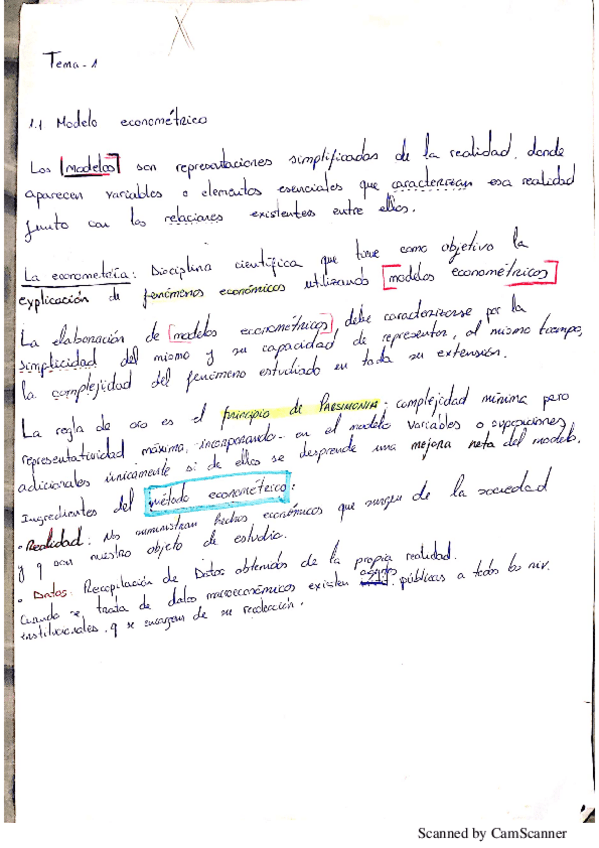 Tema - 1
1.1 Modelo econométrico
Los modelos son representaciones simplificadas de la realidad. donde
aparecen variables o elementos esenciales que caracterizan esa realidad
junto con las relaciones existentes entre ellos.
La econometría: Disciplina científica que tiene como objetivo la
explicación de fenómenos económicos utilizando modelos econométricos
La elaboración de modelos econométricos, debe caracterizarse por la
simplicidad del mismo y su capacidad de representar, al mismo tiempo,
la complejidad del fenómeno estudiado en toda su extensión.
La regla de oro es el principio de PARSIMONIA. complejidad mínima pero
representatividad máxima, incorporando en el modelo variables o suposiciones
adicionales únicamente si de ellos se desprende una mejora neta del modelo.
Ingredientes del método econométrico:
· Realidad: Nos suministran hechos económicos que surgen de la sociedad
y q son nuestro objeto de estudio.
· Datos: Recopilación de Datos obtenidos de la propia realidad.
Cuando se trata de datos macroeconómicos existen públicas a todos los niv.
institucionales, q se encargan de su recolección.
Scanned by CamScanner